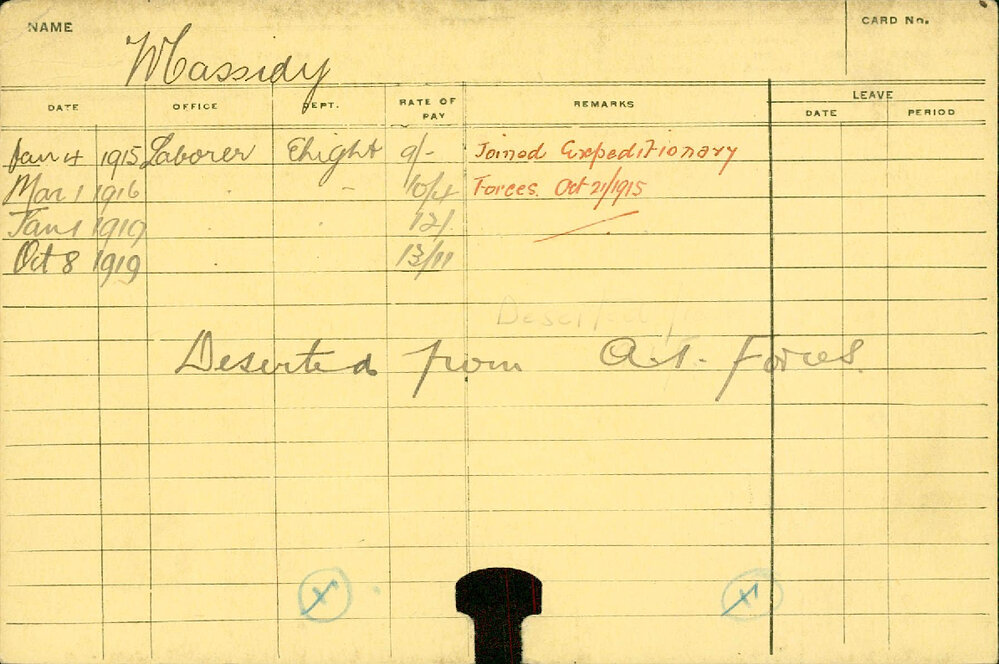 NAME
CARD No.
Massidy
DATE OFFICE DEPT. RATE OF PAY REMARKS LEAVE
DATE PERIOD
Jan 4 1915 Laborer Elight 9/- Joined Expeditionary
Mar 1 1916 " - 10/4 Forces. Oct 21/1915
Jan 1 1919 " 12/.
Oct 8 1919 " 13/11
Deserted
Deserted from A.I. Forces.
X
X